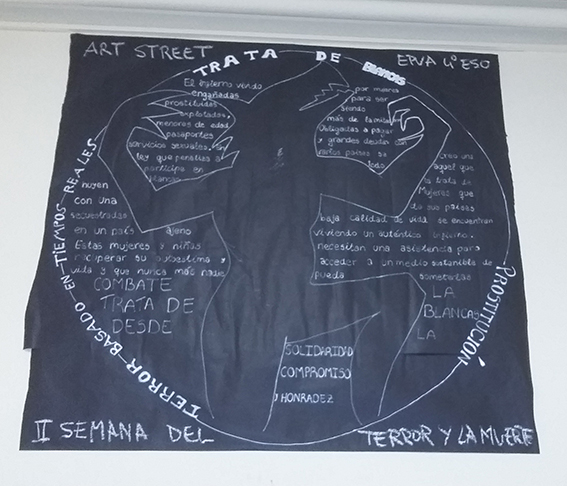 ART STREET
EPVA 4º ESO
TRATA DE BLANCAS
TERROR BASADO EN TIEMPOS REALES
PROSTITUCIÓN
El
viendo
engañadas
prostituidas
explotadas,
menores de edad
pasaportes
servicios sexuales.
ley que penaliza a
participa en
blancas
por mujeres
para ser
siendo
más de la mitad
Obligadas a pagar
y grandes deudas con
varios países se
todo
huyen
con una
secuestradas
en un país ajeno
Estas mujeres y niñas
recuperar su autoestima y
vida y que nunca más nadie
COMBATE
TRATA DE
DESDE
crea una
aquel que
la trata de
Mujeres que
de sus países
baja calidad de vida se encuentran
viviendo un auténtico infierno.
necesitan una asistencia para
acceder a un medio sostenible de
pueda someterlas
LA
BLANCAS
LA
SOLIDARIDAD
COMPROMISO
Y HONRADEZ
II SEMANA DEL
TERROR Y LA MUERTE